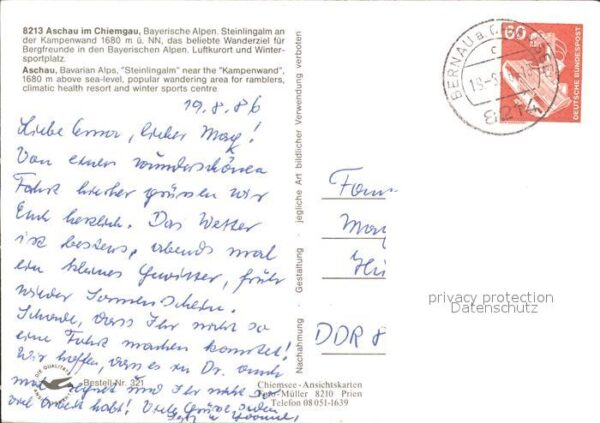 8213 Aschau im Chiemgau, Bayerische Alpen. Steinlingalm an
der Kampenwand 1680 m ü. NN, das beliebte Wanderziel für
Bergfreunde in den Bayerischen Alpen. Luftkurort und Winter-
sportplatz.
Aschau, Bavarian Alps, "Steinlingalm" near the "Kampenwand",
1680 m above sea-level, popular wandering area for ramblers,
climatic health resort and winter sports centre
19.8.86
Liebe Erna, lieber Max!
Von einer wunderschönen
Fahrt hierher grüssen wir
Euch herzlich. Das Wetter
ist bestens, abends mal
ein kleines Gewitter, früh
wieder Sonnenschein.
Schade, dass Ihr nicht so
eine Fahrt machen könntet!
Wir hoffen, dass es zu Dr. auch
mal regnet und Ihr nicht so
viel Arbeit habt! Viele Grüsse
Bestell-Nr. 321
Nachahmung · Gestaltung · jegliche Art bildlicher Verwendung verboten
Chiemsee-Ansichtskarten
Müller 8210 Prien
Telefon 08051-1639
60
DEUTSCHE BUNDESPOST
BERNAU a. CHIEMSEE
8214
Fam
May
Hi
DDR 8
privacy protection
Datenschutz